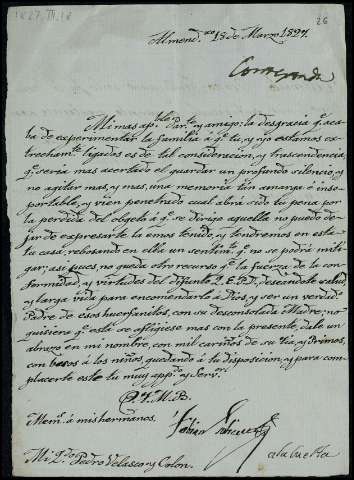 1827, III, 18
26
Almend.xo 18 de Marzo 1827.
Contestada
Mi mas ap.ble Par.te y amigo: la desgracia q.e aca-
ba de experimentar la familia á q.e tu, y yo estamos ex-
trecham.te ligados es de tal consideracion, y trascendencia
q.e seria mas acertado el guardar un profundo silencio, y
no agitar mas, y mas, una memoria tan amarga é inso-
portable, y vien penetrado cual abrá sido tu pena por
la perdida del obgeto á q.e se dirigo aquella no puedo de-
jar de expresarte la emos tenido, y tendremos en esta
tu casa, rebosando en ella un sentim.to q.e no se podrá miti-
gar; asi pues, no queda otro recurso q.e la fuerza de la con-
formidad, y virtudes del difunto Q.E.P.D, deseandote salud,
y larga vida para encomendarlo á Dios, y ser un verdad.o
Padre de esos huerfanitos, con su desconsolada Madre; no
quisiera q.e esta se afligiese mas con la presente, dale un
abrazo en mi nombre, con mil cariños de su Tia, y Primos,
con besos á los niños, quedando á tu disposicion, y para com-
placerte este tu muy app.do y Serv.r
Q.T.M.B.
Mem.s á mis hermanos.
Fabian
á la buelta
Mi Q.do Pedro Velasco y Colon.